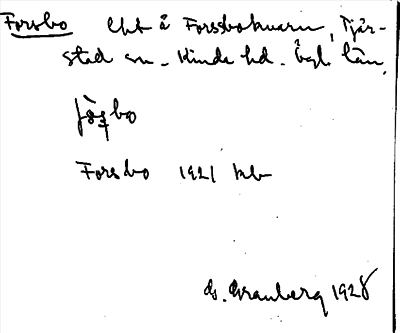 Forsbo Lht å Forsbokvarn, Tjär-
stad sn. Kinda hd. Ögl. län.
Forsbo 1921 kb
G. Granberg 1928